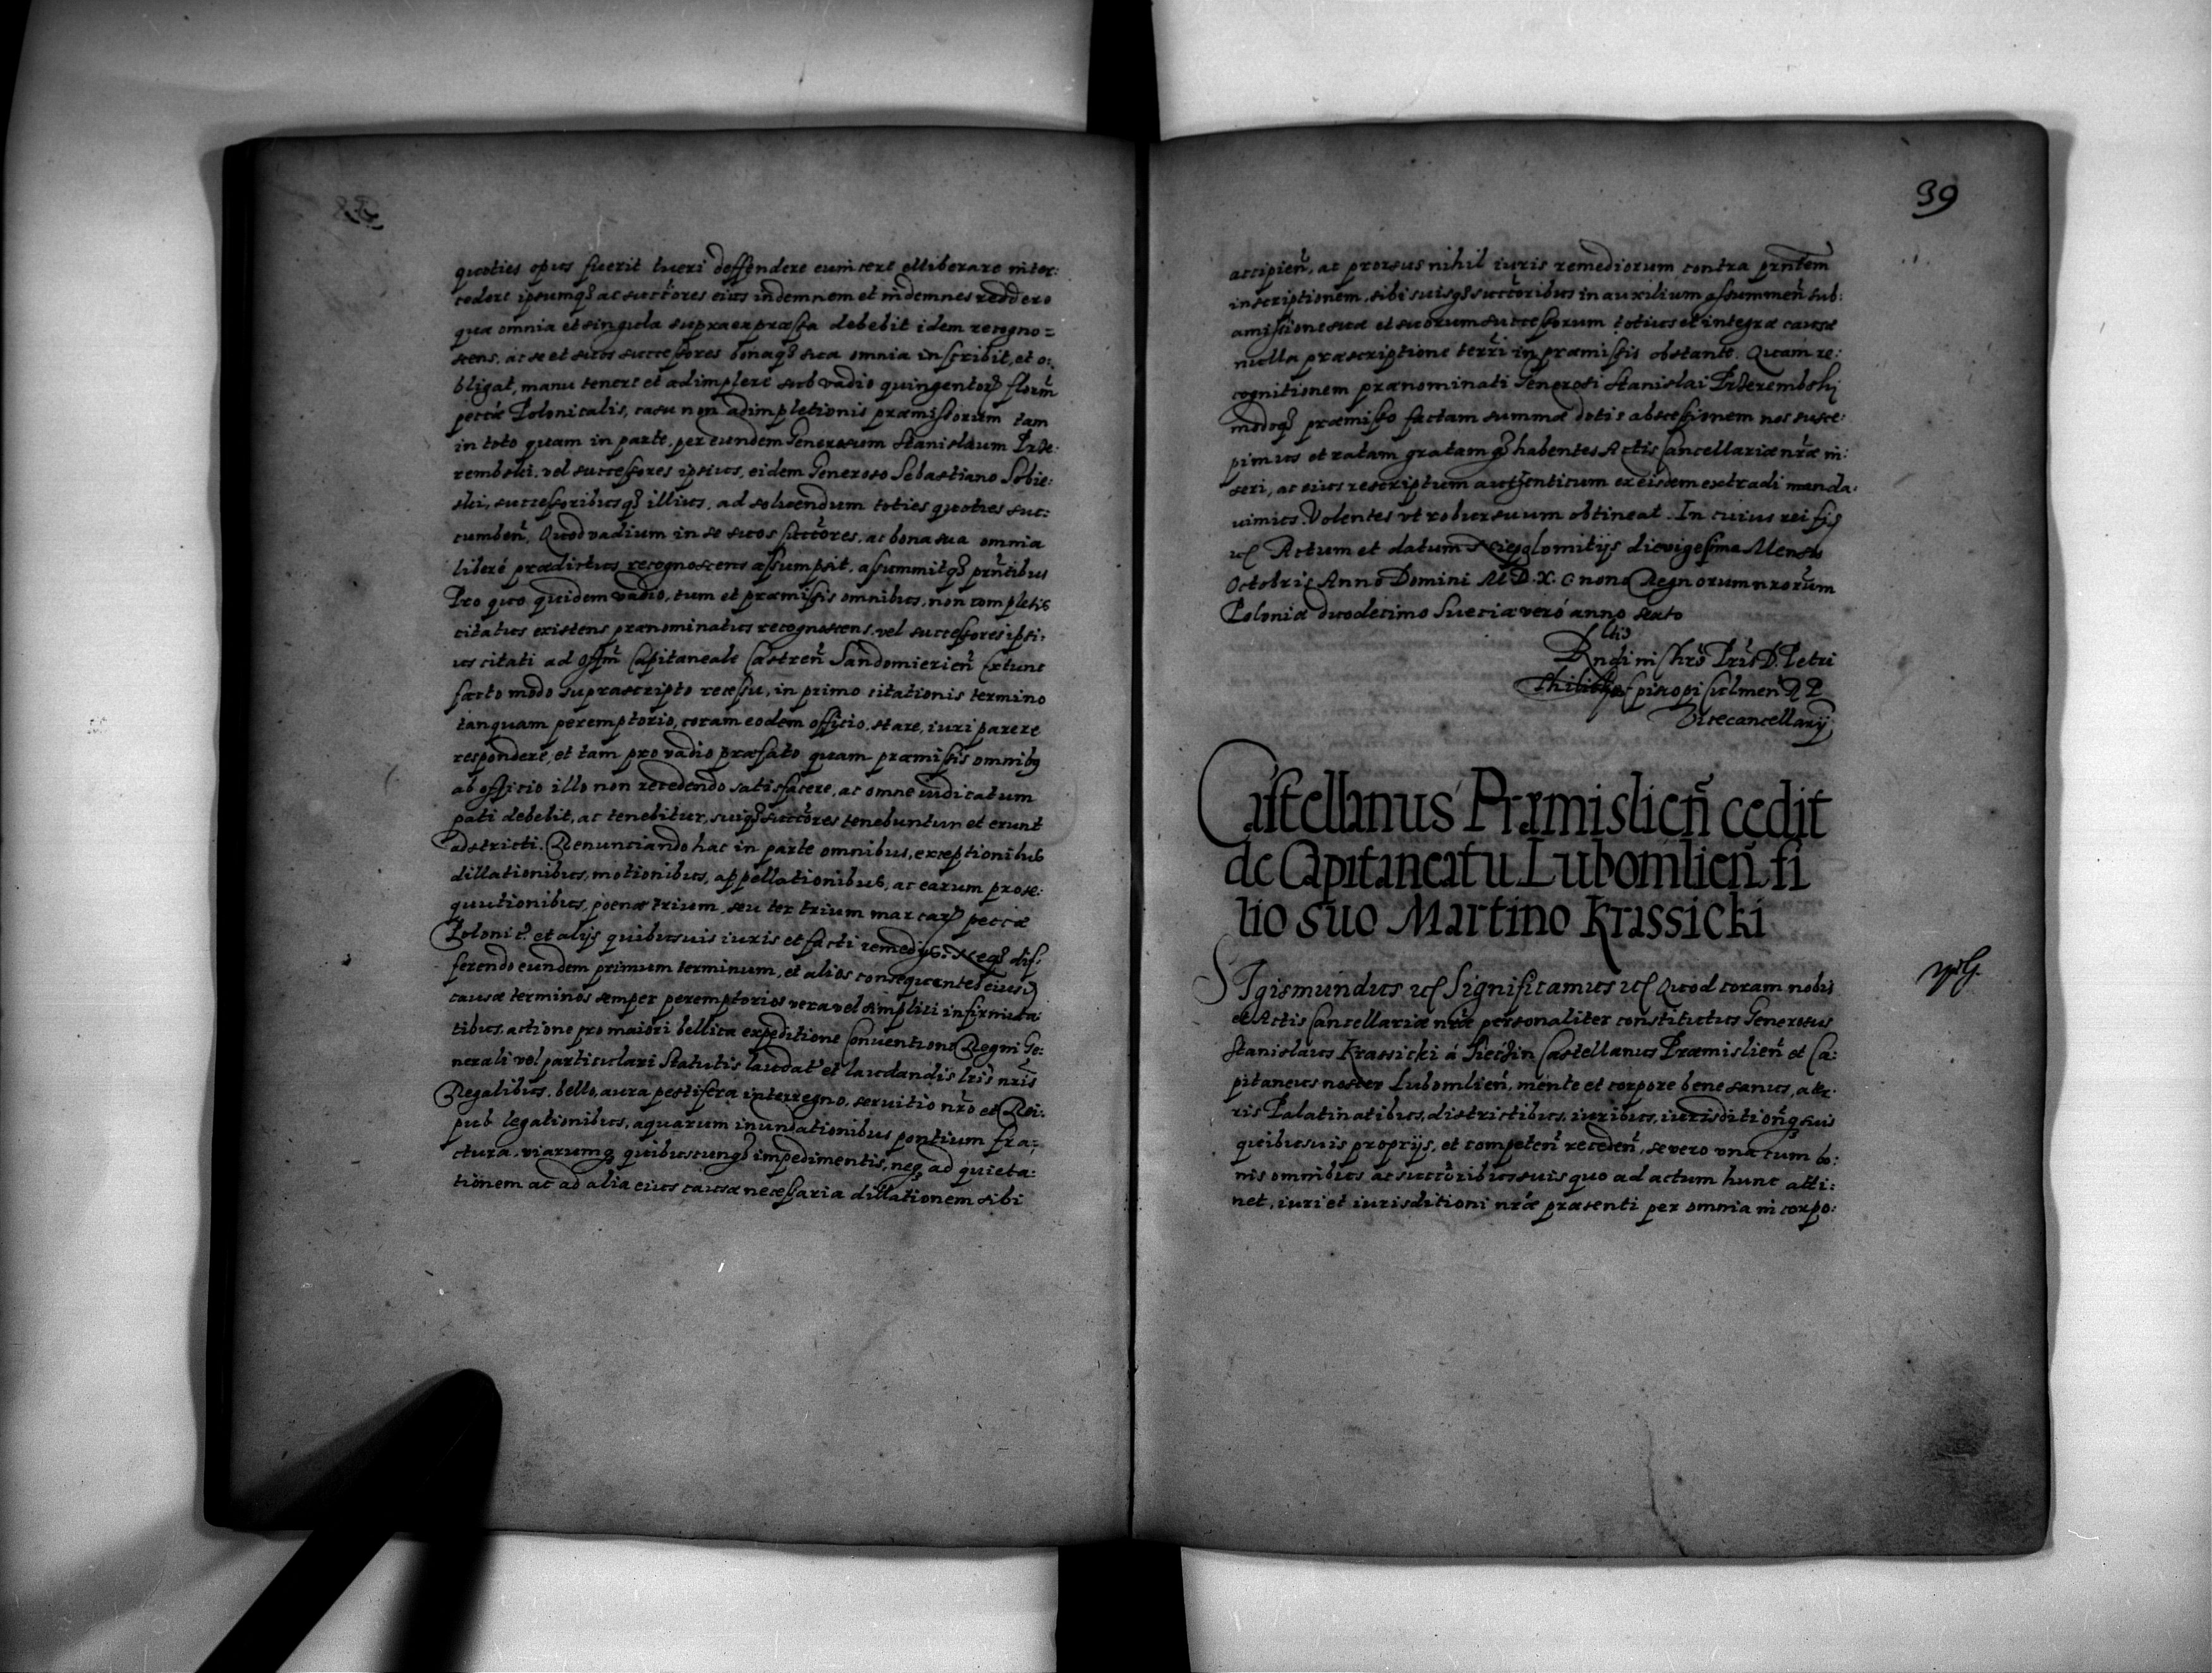 quoties opus fuerit tueri deffendere euincere et liberare inter:
cedere ipsumq₃ ac succ̃tores eius indemnem et indemnes reddere
quæ omnia et singula supra expressa debebit idem recogno=
scens, ac se et suos successores bonaq₃ sua omnia inscribit, et o:
bligat, manu tenere et adimplere sub vadio quingentorꝝ florin̄
peccæ Polonicalis, casu non adimpletionis præmissorum tam
in toto quam in parte, per eundem Generosum Stanislaum Prze:
rembski, vel successores ipsius, eidem Generoso Sebastiano Sobie:
ski, successoribusq₃ illius, ad soluendum toties quoties suc:
cumben̄, Quod vadium in se suos succ̃tores, ac bona sua omnia
liberé prædictus recognoscens assumpsit, assummitq₃ prñtibus
Pro quo quidem vadio, tum et præmissis omnibus, non completis
citatus existens prænominatus recognoscens, vel successores ipsi:
us citati ad Offm̄ Capitaneale Castren̄ Sandomierien̄ Extunc
facto modo suprascripto recessu, in primo citationis termino
tanquam peremptorio, coram eodem officio, stare, iuri parere
respondere, et tam pro vadio præfato quam præmissis omnibꝯ
ab officio illo non recedendo satisfacere, ac omne iudicatum
pati debebit, ac tenebitur, suiq₃ succ̃tores tenebuntur et erunt
adstricti. Renunciando hac in parte omnibus, exceptionibus
dillationibus, motionibus, appellationibus, ac earum prose:
quutionibus, poenæ trium, seu ter trium marcarꝝ peccæ
Polonic̄. et alijs quibusuis iuris et facti remedijs. Neq₃ dif:
ferendo eundem primum terminum, et alios consequentes eiusd̄
causæ terminos semper peremptorios vera vel simplici infirmita:
tibus, actione pro maiori bellica expeditione Conuentione Regni Ge:
nerali vel particulari Statutis laudat̄ et laudandis lr̃is nr̃is
Regalibus, bello, aura pestifera interregno, seruitio nr̃o et Rei:
pub legationibus, aquarum inundationibus pontium fra:
ctura, viarumq₃ quibuscunq₃ impedimentis, neq₃ ad quieta:
tionem ac ad alia eius causæ necessaria dillationem sibi
39
accipien̄, ac prorsus nihil iuris remediorum contra prñtem
inscriptionem, sibi suisq₃ succ̃toribus in auxilium assummen̄ sub:
amissione suæ et suorum successorum totius et integræ causæ
nulla præscriptione terr̃i in præmissis obstante. Quam re:
cognitionem prænominati Generosi Stanislai Przerembski
modoq₃ præmisso factam summæ dotis abscessionem nos susce:
pimus et ratam gratamq₃ habentes Actis Cancellariæ nr̃æ in:
seri, ac eius rescriptum authenticum ex eisdem extradi manda:
uimus. Volentes vt robur suum obtineat. In cuius rei fiꝫ
etc Actum et datum Niepolomitijs die vigesima Mensis
Octobris Anno Domini M.D.X.C nono Regnorum nrorũm
Poloniæ duodecimo Sueciæ veró anno sexto
Rltio
Rndi in Chrõ Pr̃is D. Petri
Tÿlicki Episcopi Culmen̄ R P
Vicecancellarij
Castellanus Præmislien̄ cedit
de Capitaneatu Lubomlien̄ fi
lio suo Martino Krassicki
SIgismundus etc Significamus etc Quod coram nobis
et Actis Cancellariæ nr̃æ personaliter constitutus Generosus
Stanislaus Krassicki á Sieczin Castellanus Præmislien̄ et Ca:
pitaneus noster Lubomlien̄, mente et corpore bene sanus, a ter:
ris Palatinatibus, districtibus, iuribus, iurisdition̄q₃ suis
quibusuis proprijs, et competen̄ receden̄, se vero vna cum bo:
nis omnibus ac succ̃toribus suis quo ad actum hunc atti:
net, iuri et iurisditioni nr̃æ præsenti per omnia incorpo: